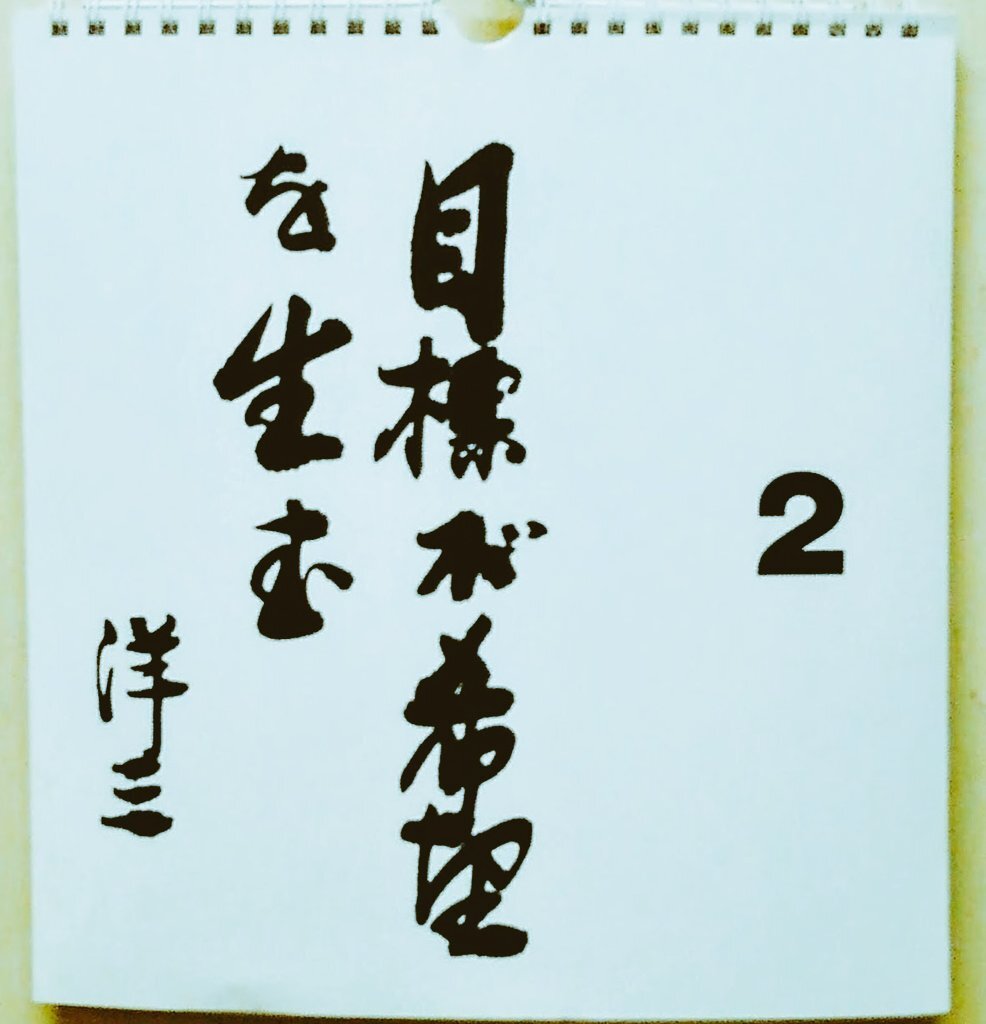 2
目標が希望
を生む
洋三